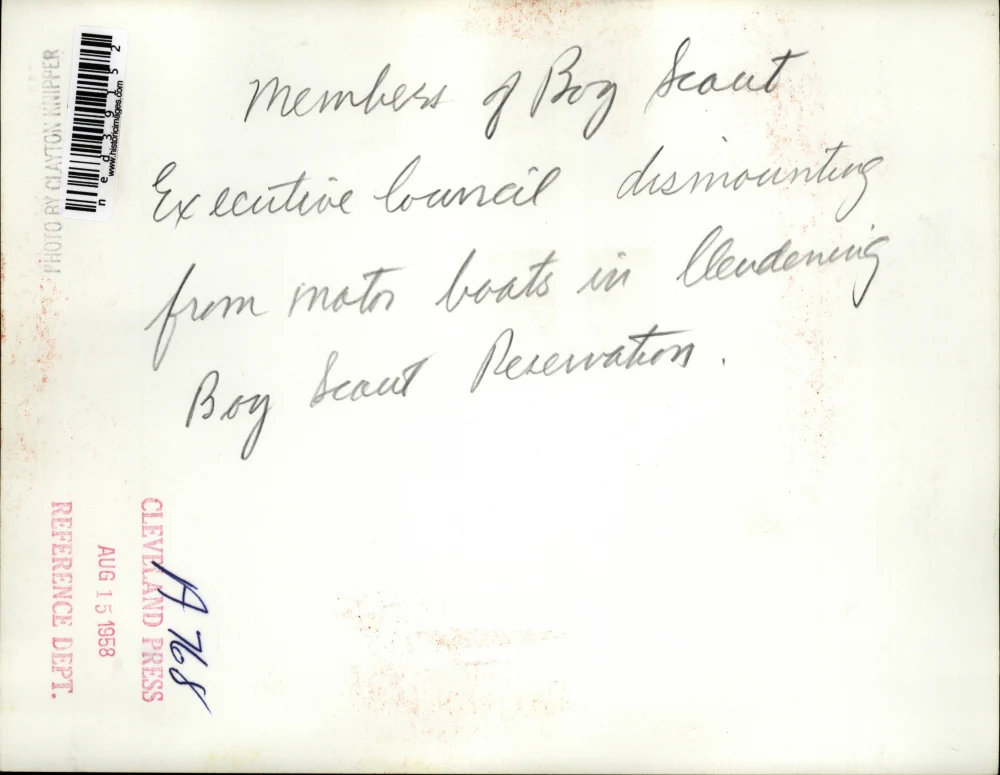 Members of Boy Scout
Executive Council dismounting
from motor boats in Clendening
Boy Scout Reservation.
PHOTO BY CLAYTON KNIPPER
ned39152
www.historicimages.com
CLEVELAND PRESS
AUG 15 1958
REFERENCE DEPT.
A768